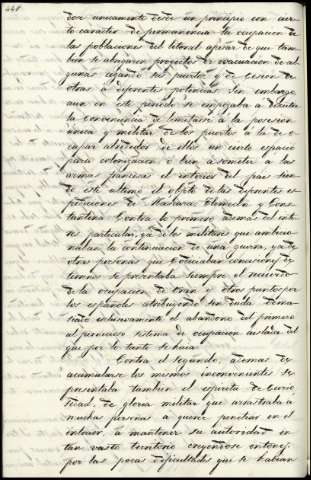 dose unicamente desde un principio con cier-
to caracter de permanencia la ocupacion de
las poblaciones del litoral apesar de que tam-
bien se abrigaron proyectos de evacuacion de al-
gunas cegando sus puertos, y de cesion de
otras á diferentes potencias. Sin embargo
aun en este periodo se empezaba á discutir
la conveniencia de limitarse á la posesion
unica y militar de los puertos ó la de o-
cupar alrededor de ellos un cierto espacio
para colonizacion ó bien á someter a las
armas francesas el interior del pais sien-
do este ultimo el objeto de las diferentes es-
pediciones de Mascara Tlemecén y Cons-
tantina. Contra lo primero ademas del inte-
res particular, ya de los militares que ambicio-
naban la continuacion de una guerra, ya de
otras personas que concesiones de
terrenos se presentaba siempre el recuerdo
de la ocupacion de Oran y otros puntos por
los españoles atribuyendo sin duda dema-
siado esclusivamente el abandono del primero
al pernicioso sistema de ocupacion aislada del
que por lo tanto se huia.
Contra el segundo, ademas de
acumularse los mismos inconvenientes se
presentaba tambien el espiritu de curio-
sidad, de gloria militar que arrastraba a
muchas personas á querer penetrar en el
interior, á mantener su autoridad en
tan vasto territorio creyendose entonces,
por las pocas dificultades que se habian